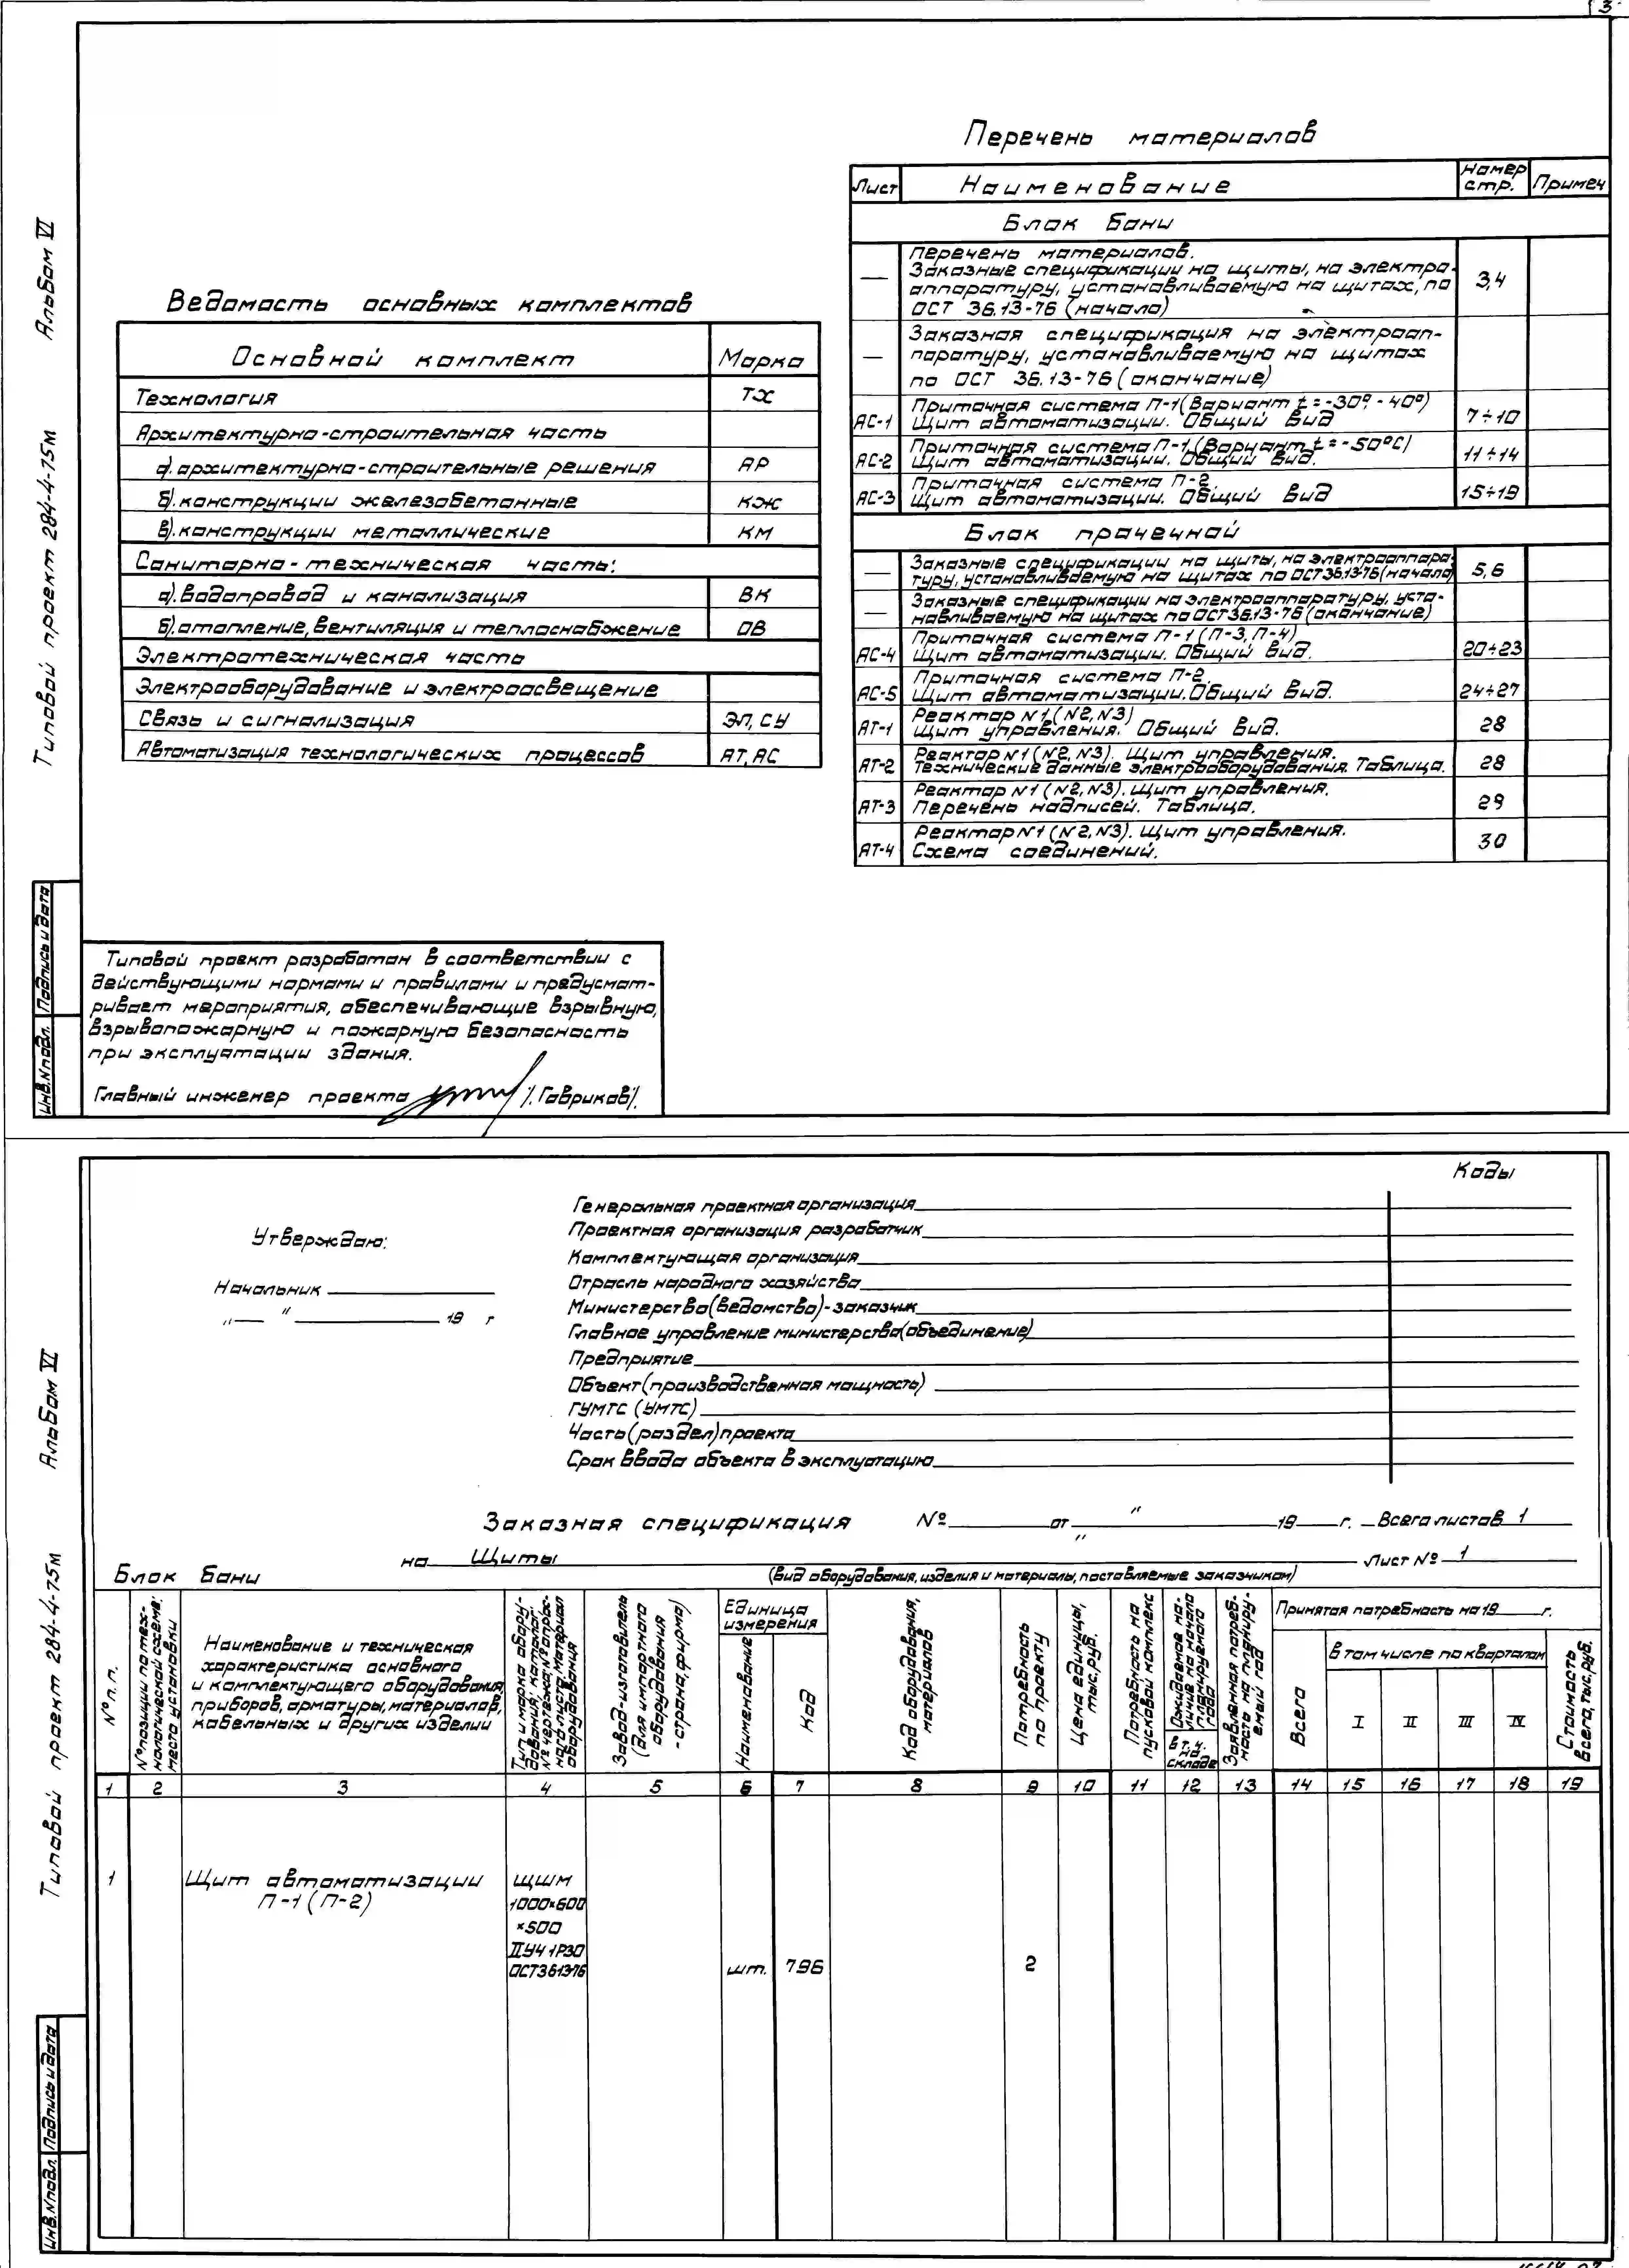 3
Типовой проект 284-4-75м Альбом VI
Перечень материалов
Лист Наименование Номер стр. Примеч
Блок бани
— Перечень материалов.
Заказные спецификации на щиты, на электро-
аппаратуру, устанавливаемую на щитах, по
ОСТ 36.13-76 (начало) 3,4
— Заказная спецификация на электроап-
паратуру, устанавливаемую на щитах
по ОСТ 36.13-76 (окончание)
АС-1 Приточная система П-1 (Вариант t = -30°, -40°)
Щит автоматизации. Общий вид 7÷10
АС-2 Приточная система П-1 (Вариант t = -50°С)
Щит автоматизации. Общий вид. 11÷14
АС-3 Приточная система П-2.
Щит автоматизации. Общий вид 15÷19
Блок прачечной
— Заказные спецификации на щиты, на электроаппара-
туру, устанавливаемую на щитах по ОСТ 36.13-76 (начало) 5,6
— Заказные спецификации на электроаппаратуру, уста-
навливаемую на щитах по ОСТ 36.13-76 (окончание)
АС-4 Приточная система П-1 (П-3, П-4)
Щит автоматизации. Общий вид. 20÷23
АС-5 Приточная система П-2.
Щит автоматизации. Общий вид. 24÷27
АТ-1 Реактор N1 (N2, N3)
Щит управления. Общий вид. 28
АТ-2 Реактор N1 (N2, N3). Щит управления.
Технические данные электрооборудования. Таблица. 28
АТ-3 Реактор N1 (N2, N3). Щит управления.
Перечень надписей. Таблица. 29
АТ-4 Реактор N1 (N2, N3). Щит управления.
Схема соединений. 30
Ведомость основных комплектов
Основной комплект Марка
Технология ТХ
Архитектурно-строительная часть
а). архитектурно-строительные решения АР
б). конструкции железобетонные КЖ
в). конструкции металлические КМ
Санитарно-техническая часть:
а). водопровод и канализация ВК
б). отопление, вентиляция и теплоснабжение ОВ
Электротехническая часть
Электрооборудование и электроосвещение
Связь и сигнализация ЭЛ, СУ
Автоматизация технологических процессов АТ, АС
Типовой проект разработан в соответствии с
действующими нормами и правилами и предусмат-
ривает мероприятия, обеспечивающие взрывную,
взрывопожарную и пожарную безопасность
при эксплуатации здания.
Главный инженер проекта /Гавриков/.
Инв.N подл. Подпись и дата
Типовой проект 284-4-75м Альбом VI
Коды
Утверждаю:
Начальник
„ “ 19 г
Генеральная проектная организация
Проектная организация разработчик
Комплектующая организация
Отрасль народного хозяйства
Министерство (ведомство)-заказчик
Главное управление министерства (объединение)
Предприятие
Объект (производственная мощность)
ГУМТС (УМТС)
Часть (раздел) проекта
Срок ввода объекта в эксплуатацию
Заказная спецификация № от „ “ 19 г. Всего листов 1
на Щиты Лист № 1
(вид оборудования, изделия и материалы, поставляемые заказчиком)
Блок бани
№ п.п.
№ позиции по тех-
нологической схеме;
место установки
Наименование и техническая
характеристика основного
и комплектующего оборудования,
приборов, арматуры, материалов,
кабельных и других изделии
Тип и марка обору-
дования; каталог;
№ чертежа, № опрос-
ного листа. Материал
оборудования
Завод-изготовитель
(для импортного
оборудования
-страна, фирма)
Единица
измерения
Наименование
Код
Код оборудования,
материалов
Потребность
по проекту
Цена единицы,
тыс. руб.
Потребность на
пусковой комплекс
Ожидаемое на-
личие на начало
планируемого
года
в т.ч.
на
складе
Заявленная потреб-
ность на планиру-
емый год
Принятая потребность на 19 г.
Всего
в том числе по кварталам
I II III IV
Стоимость
всего, тыс. руб.
1 2 3 4 5 6 7 8 9 10 11 12 13 14 15 16 17 18 19
1 Щит автоматизации ЩШМ
П-1 (П-2) 1000×600
×500
II УЧ 1Р30
ОСТ361376 шт. 796 2
Инв.N подл. Подпись и дата